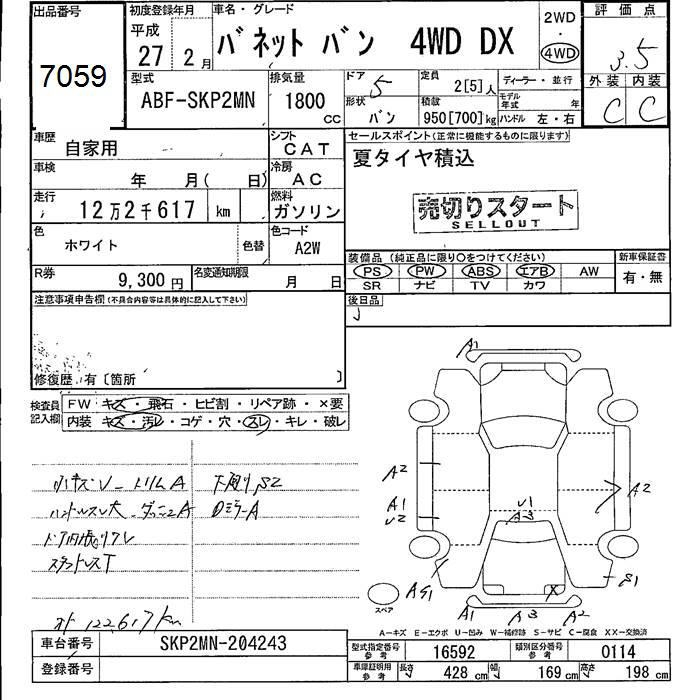 出品番号
7059
初度登録年月
平成
27 年 2 月
車名・グレード
バネット バン 4WD DX
2WD
・
4WD
評価点
3.5
外装 内装
C C
型式
ABF-SKP2MN
排気量
1800 CC
ドア 5
形状 バン
定員 2[5]人
積載 950[700]kg
ディーラー・並行
モデル年式 年
ハンドル 左・右
車歴 自家用
シフト CAT
車検 年 月( 日)
冷房 AC
走行 12万2千617 km
燃料 ガソリン
色 ホワイト 色替
色コード A2W
R券 9,300円
名変通知期限 月 日
セールスポイント(正常に機能するものに限ります)
夏タイヤ積込
売切りスタート
SELLOUT
装備品 (純正品に限り○をつけてください)
PS PW ABS エアB AW
SR ナビ TV カワ
新車保証書
有・無
後日品
注意事項申告欄(不具合内容等は具体的に記入して下さい)
修復歴 有〔箇所 〕
検査員記入欄
FW キズ・飛石・ヒビ割・リペア跡・×要
内装 キズ・汚レ・コゲ・穴・スレ・キレ・破レ
ハンドルスレ大
ドア内張りアレ
スタッドレスT
下廻りS2
Dミラ-A
122,617km
A1
A2
A1
U2
U1
A3
A2
S1
A1
A3
A2
スペア
A－キズ E－エクボ U－凹み W－補修跡 S－サビ C－腐食 XX－交換済
車台番号 SKP2MN-204243
登録番号
型式指定番号 参考 16592
類別区分番号 参考 0114
車庫証明用 参考 長さ 428 cm 幅 169 cm 高さ 198 cm